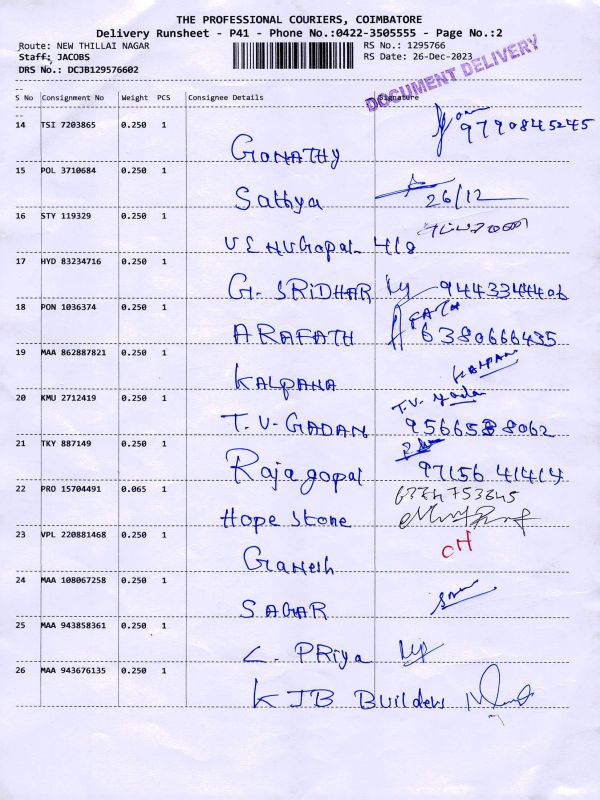 THE PROFESSIONAL COURIERS, COIMBATORE
Delivery Runsheet - P41 - Phone No.:0422-3505555 - Page No.:2
Route: NEW THILLAI NAGAR RS No.: 1295766
Staff: JACOBS RS Date: 26-Dec-2023
DRS No.: DCJB129576602
DOCUMENT DELIVERY
S No Consignment No Weight PCS Consignee Details Signature
14 TSI 7203865 0.250 1
9790845245
GOMATHY
15 POL 3710684 0.250 1
Sathya 26/12
16 STY 119329 0.250 1
VENUGopal 418
17 HYD 83234716 0.250 1
G. SRIDHAR 9443344406
18 PON 1036374 0.250 1
ARAFATH 6380666435
19 MAA 862887821 0.250 1
KALPANA KALPANA
20 KMU 2712419 0.250 1
T.V. Gadan
T.V-GADAN 9566588062
21 TKY 887149 0.250 1
Rajagopal 97156 41414
22 PRO 15704491 0.065 1
Hope Stone
23 VPL 220881468 0.250 1
Ganesh CH
24 MAA 108067258 0.250 1
SAGAR
25 MAA 943858361 0.250 1
L. PRiya
26 MAA 943676135 0.250 1
KJB Builders